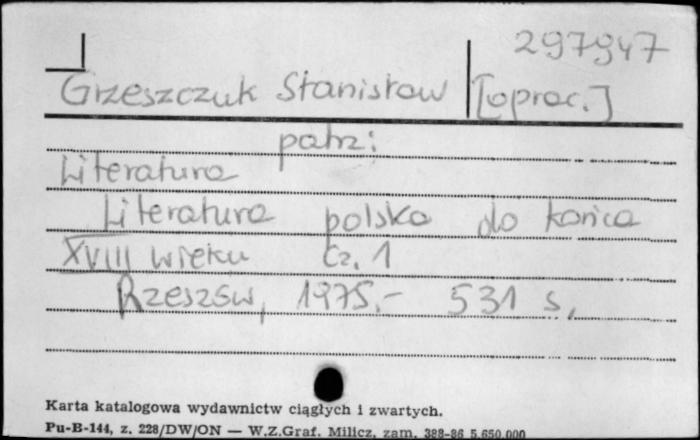 297947
Grzeszczuk Stanisław [oprac.]
patrz:
Literatura
Literatura polska do końca
XVIII wieku Cz. 1
Rzeszów, 1975.- 531 s.
Karta katalogowa wydawnictw ciągłych i zwartych.
Pu-B-144, z. 228/DW/ON — W.Z.Graf. Milicz, zam. 388-86 5.650.000